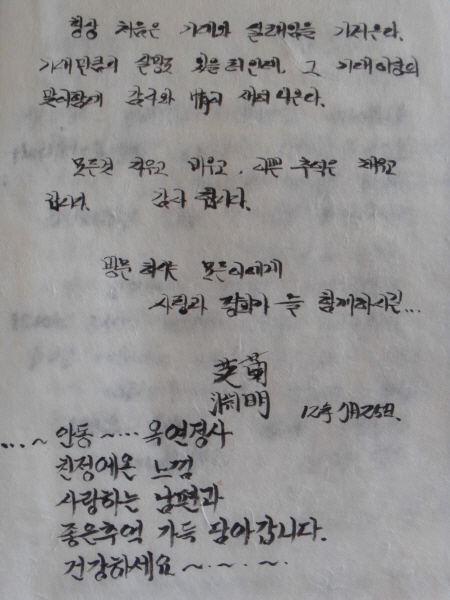 항상 처음은 기대와 설레임을 가져온다.
기대만큼의 실망도 있을 터인데, 그 기대 이상의
감구와 情이 새더 나온다.
모든것 치우고 비우고, 추억은 채우고
갑니다. 감사 합니다.
방문 하는 모든이에게
사랑과 평화가 늘 함께하시길...
明 12年 月 25日.
...~ 안동 ~... 옥연정사
친정에온 느낌
사랑하는 남편과
좋은추억 가득 담아갑니다.
건강하세요 ~.~.~.